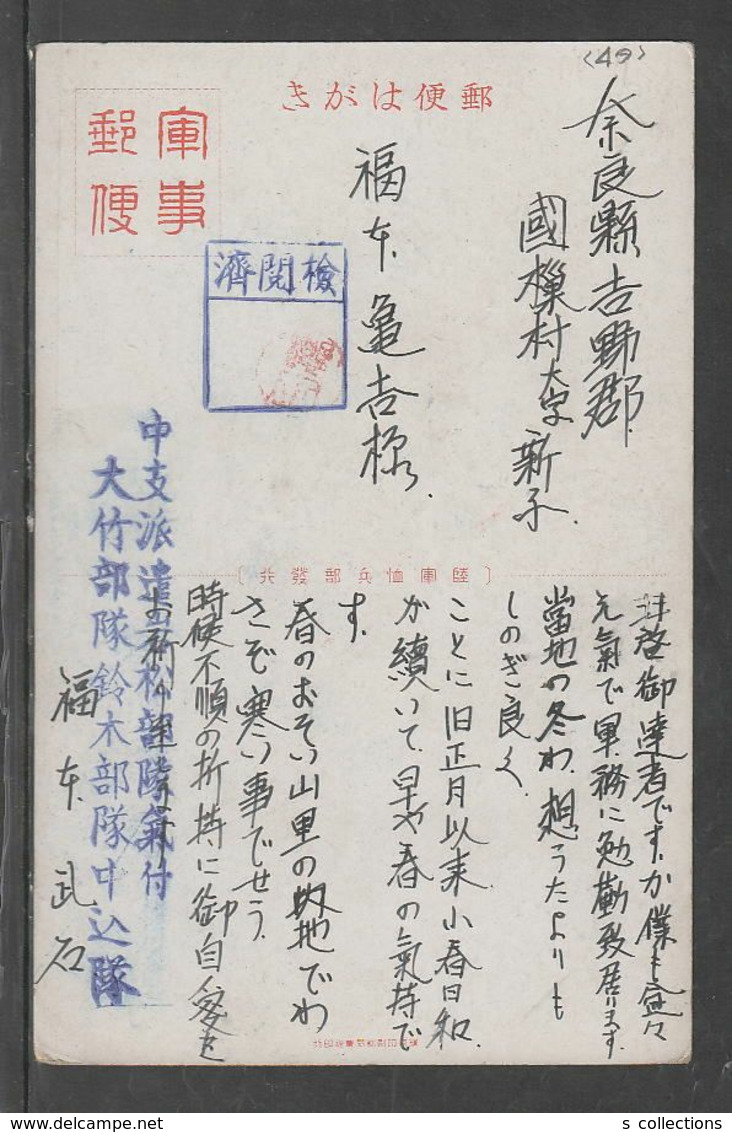 (49)
郵便はがき
軍事
郵便
奈良縣吉野郡
國樔村大字新子
福本亀吉様
檢閲濟
〔陸軍恤兵部發行〕
拝啓御達者ですか僕も益々
元氣で軍務に勉勵致居ります。
當地の冬わ、想うたよりも
しのぎ良く
ことに旧正月以来小春日和
が續いて、早や春の氣持で
す。
春のおそい山里の地でわ
さぞ寒い事でせう。
時候不順の折特に御自愛を
お祈り
中支派遣松部隊氣付
大竹部隊鈴木部隊中込隊
福本武石
s collections
delcampe.net